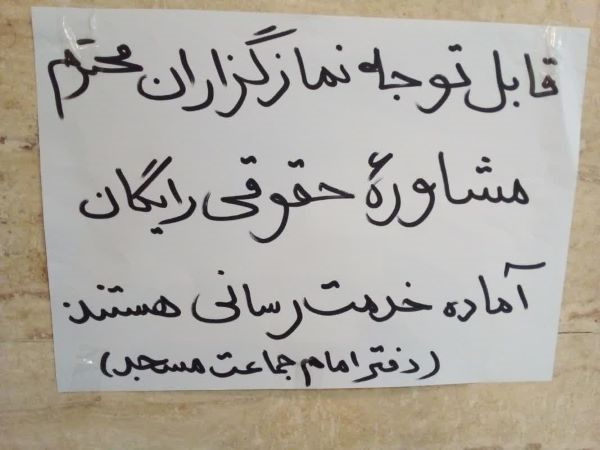 قابل توجه نمازگزاران محترم
مشاورهٔ حقوقی رایگان
آماده خدمت رسانی هستند
(دفتر امام جماعت مسجد)